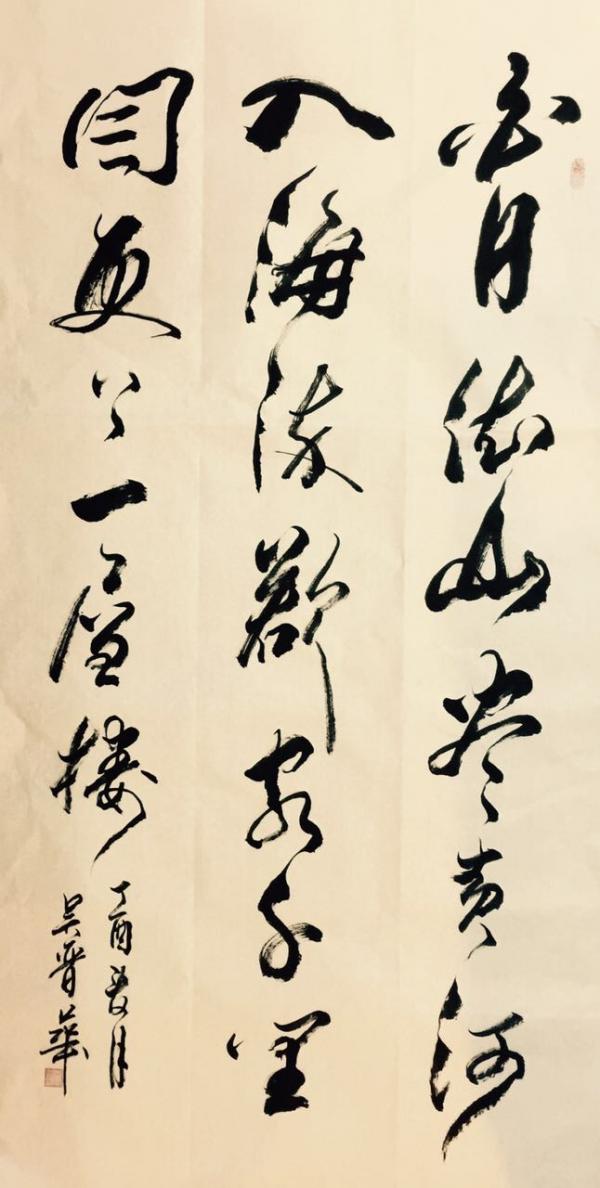 白日依山尽黄河
入海流欲穷千里
目更上一層楼
丁酉月
吴晋華